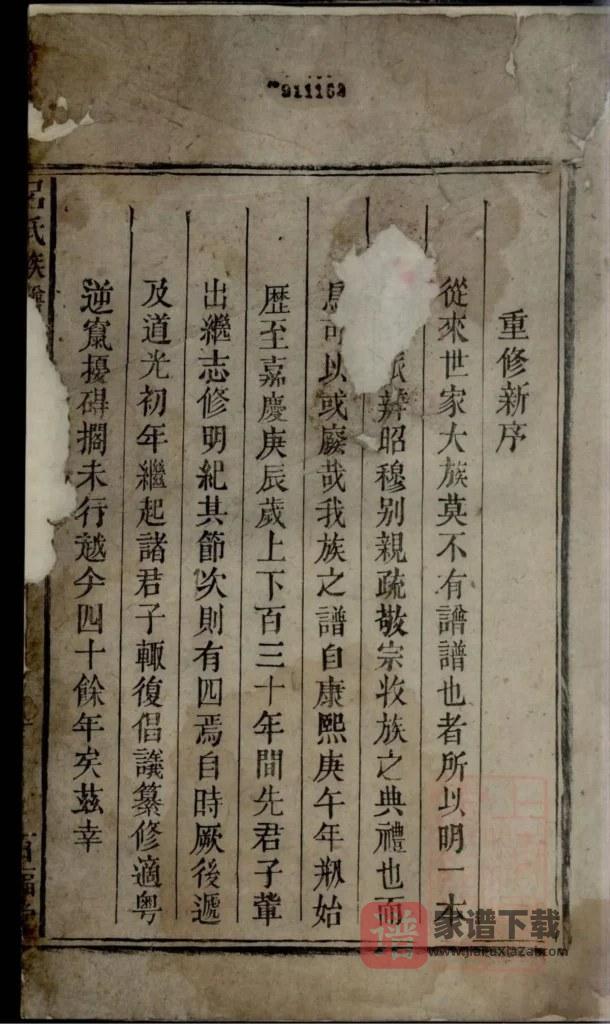 911162
重修新序
從來世家大族莫不有譜譜也者所以明一本
派辨昭穆别親疏敬宗收族之典禮也而
焉可以或廢哉我族之譜自康熙庚午年剏始
歴至嘉慶庚辰歲上下百三十年間先君子輩
出繼志修明紀其節次則有四焉自時厥後遞
及道光初年繼起諸君子輒復倡議纂修適粤
逆竄擾碍擱未行越今四十餘年矣兹幸
吕氏族譜
百福堂
譜
家谱下载
www.jiapuxiazai.com